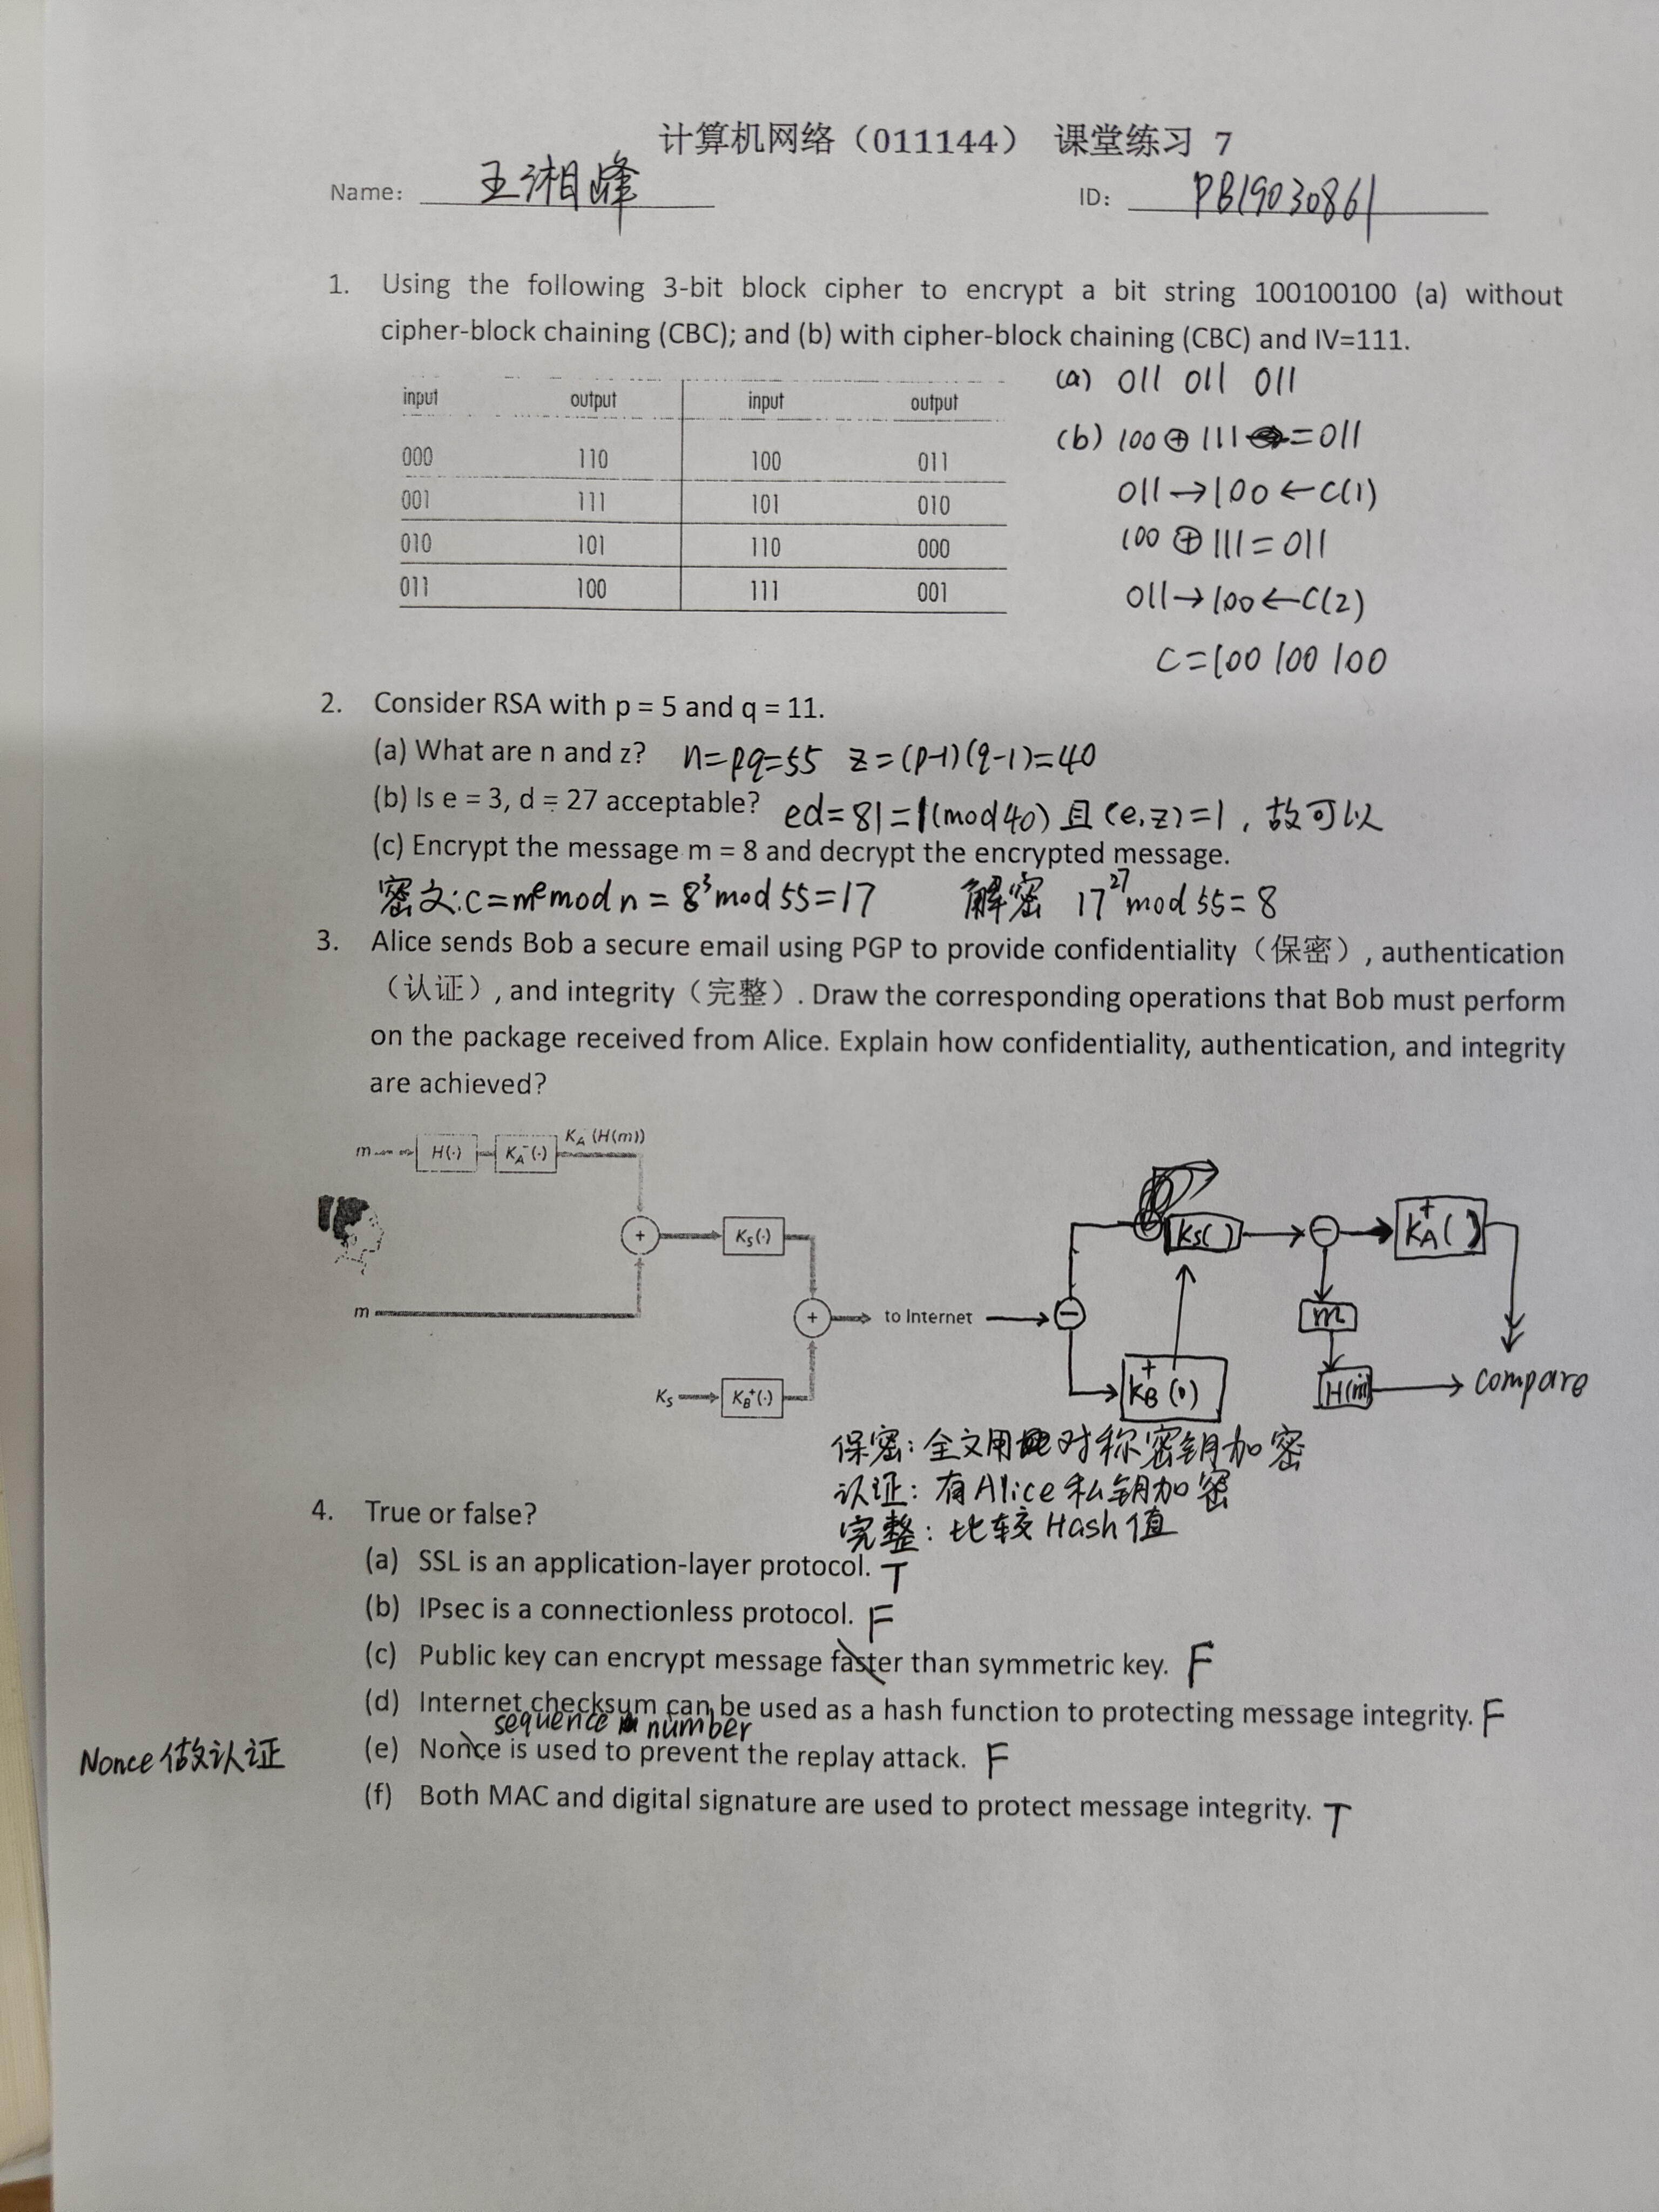 计算机网络（011144） 课堂练习 7
Name: 王湘峰 ID: PB19030861
1. Using the following 3-bit block cipher to encrypt a bit string 100100100 (a) without
cipher-block chaining (CBC); and (b) with cipher-block chaining (CBC) and IV=111.
input output input output
000 110 100 011
001 111 101 010
010 101 110 000
011 100 111 001
(a) 011 011 011
(b) 100⊕111=011
011→100←C(1)
100⊕111=011
011→100←C(2)
C=100 100 100
2. Consider RSA with p = 5 and q = 11.
(a) What are n and z? n=pq=55 z=(p-1)(q-1)=40
(b) Is e = 3, d = 27 acceptable? ed=81=1(mod40)且(e,z)=1,故可以
(c) Encrypt the message m = 8 and decrypt the encrypted message.
密文:C=m^e mod n = 8^3 mod 55=17 解密 17^27 mod 55=8
3. Alice sends Bob a secure email using PGP to provide confidentiality（保密）, authentication
（认证）, and integrity（完整）. Draw the corresponding operations that Bob must perform
on the package received from Alice. Explain how confidentiality, authentication, and integrity
are achieved?
m H(·) K_A^-(·) K_A^-(H(m))
+ K_S(·)
m
+ to Internet
K_S K_B^+(·)
K_S( ) − K_A^+( )
− m
K_B^+(·) H(m) compare
保密:全文用对称密钥加密
认证:有Alice私钥加密
完整:比较Hash值
4. True or false?
(a) SSL is an application-layer protocol. T
(b) IPsec is a connectionless protocol. F
(c) Public key can encrypt message faster than symmetric key. F
(d) Internet checksum can be used as a hash function to protecting message integrity. F
sequence number
Nonce做认证
(e) Nonce is used to prevent the replay attack. F
(f) Both MAC and digital signature are used to protect message integrity. T